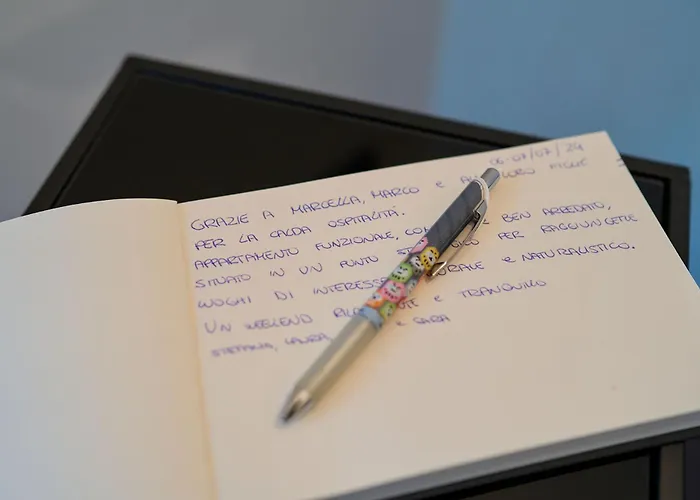 06-07/07/24
GRAZIE A MARCELLA, MARCO E LORO FIGLIE
PER LA CALDA OSPITALITÁ.
APPARTAMENTO FUNZIONALE, BEN ARREDATO,
SITUATO IN UN PUNTO PER RAGGIUNGERE
LUOGHI DI INTERESSE E NATURALISTICO.
UN WEEKEND E TRANQUILLO
STEFANIA, LAURA, E SARA